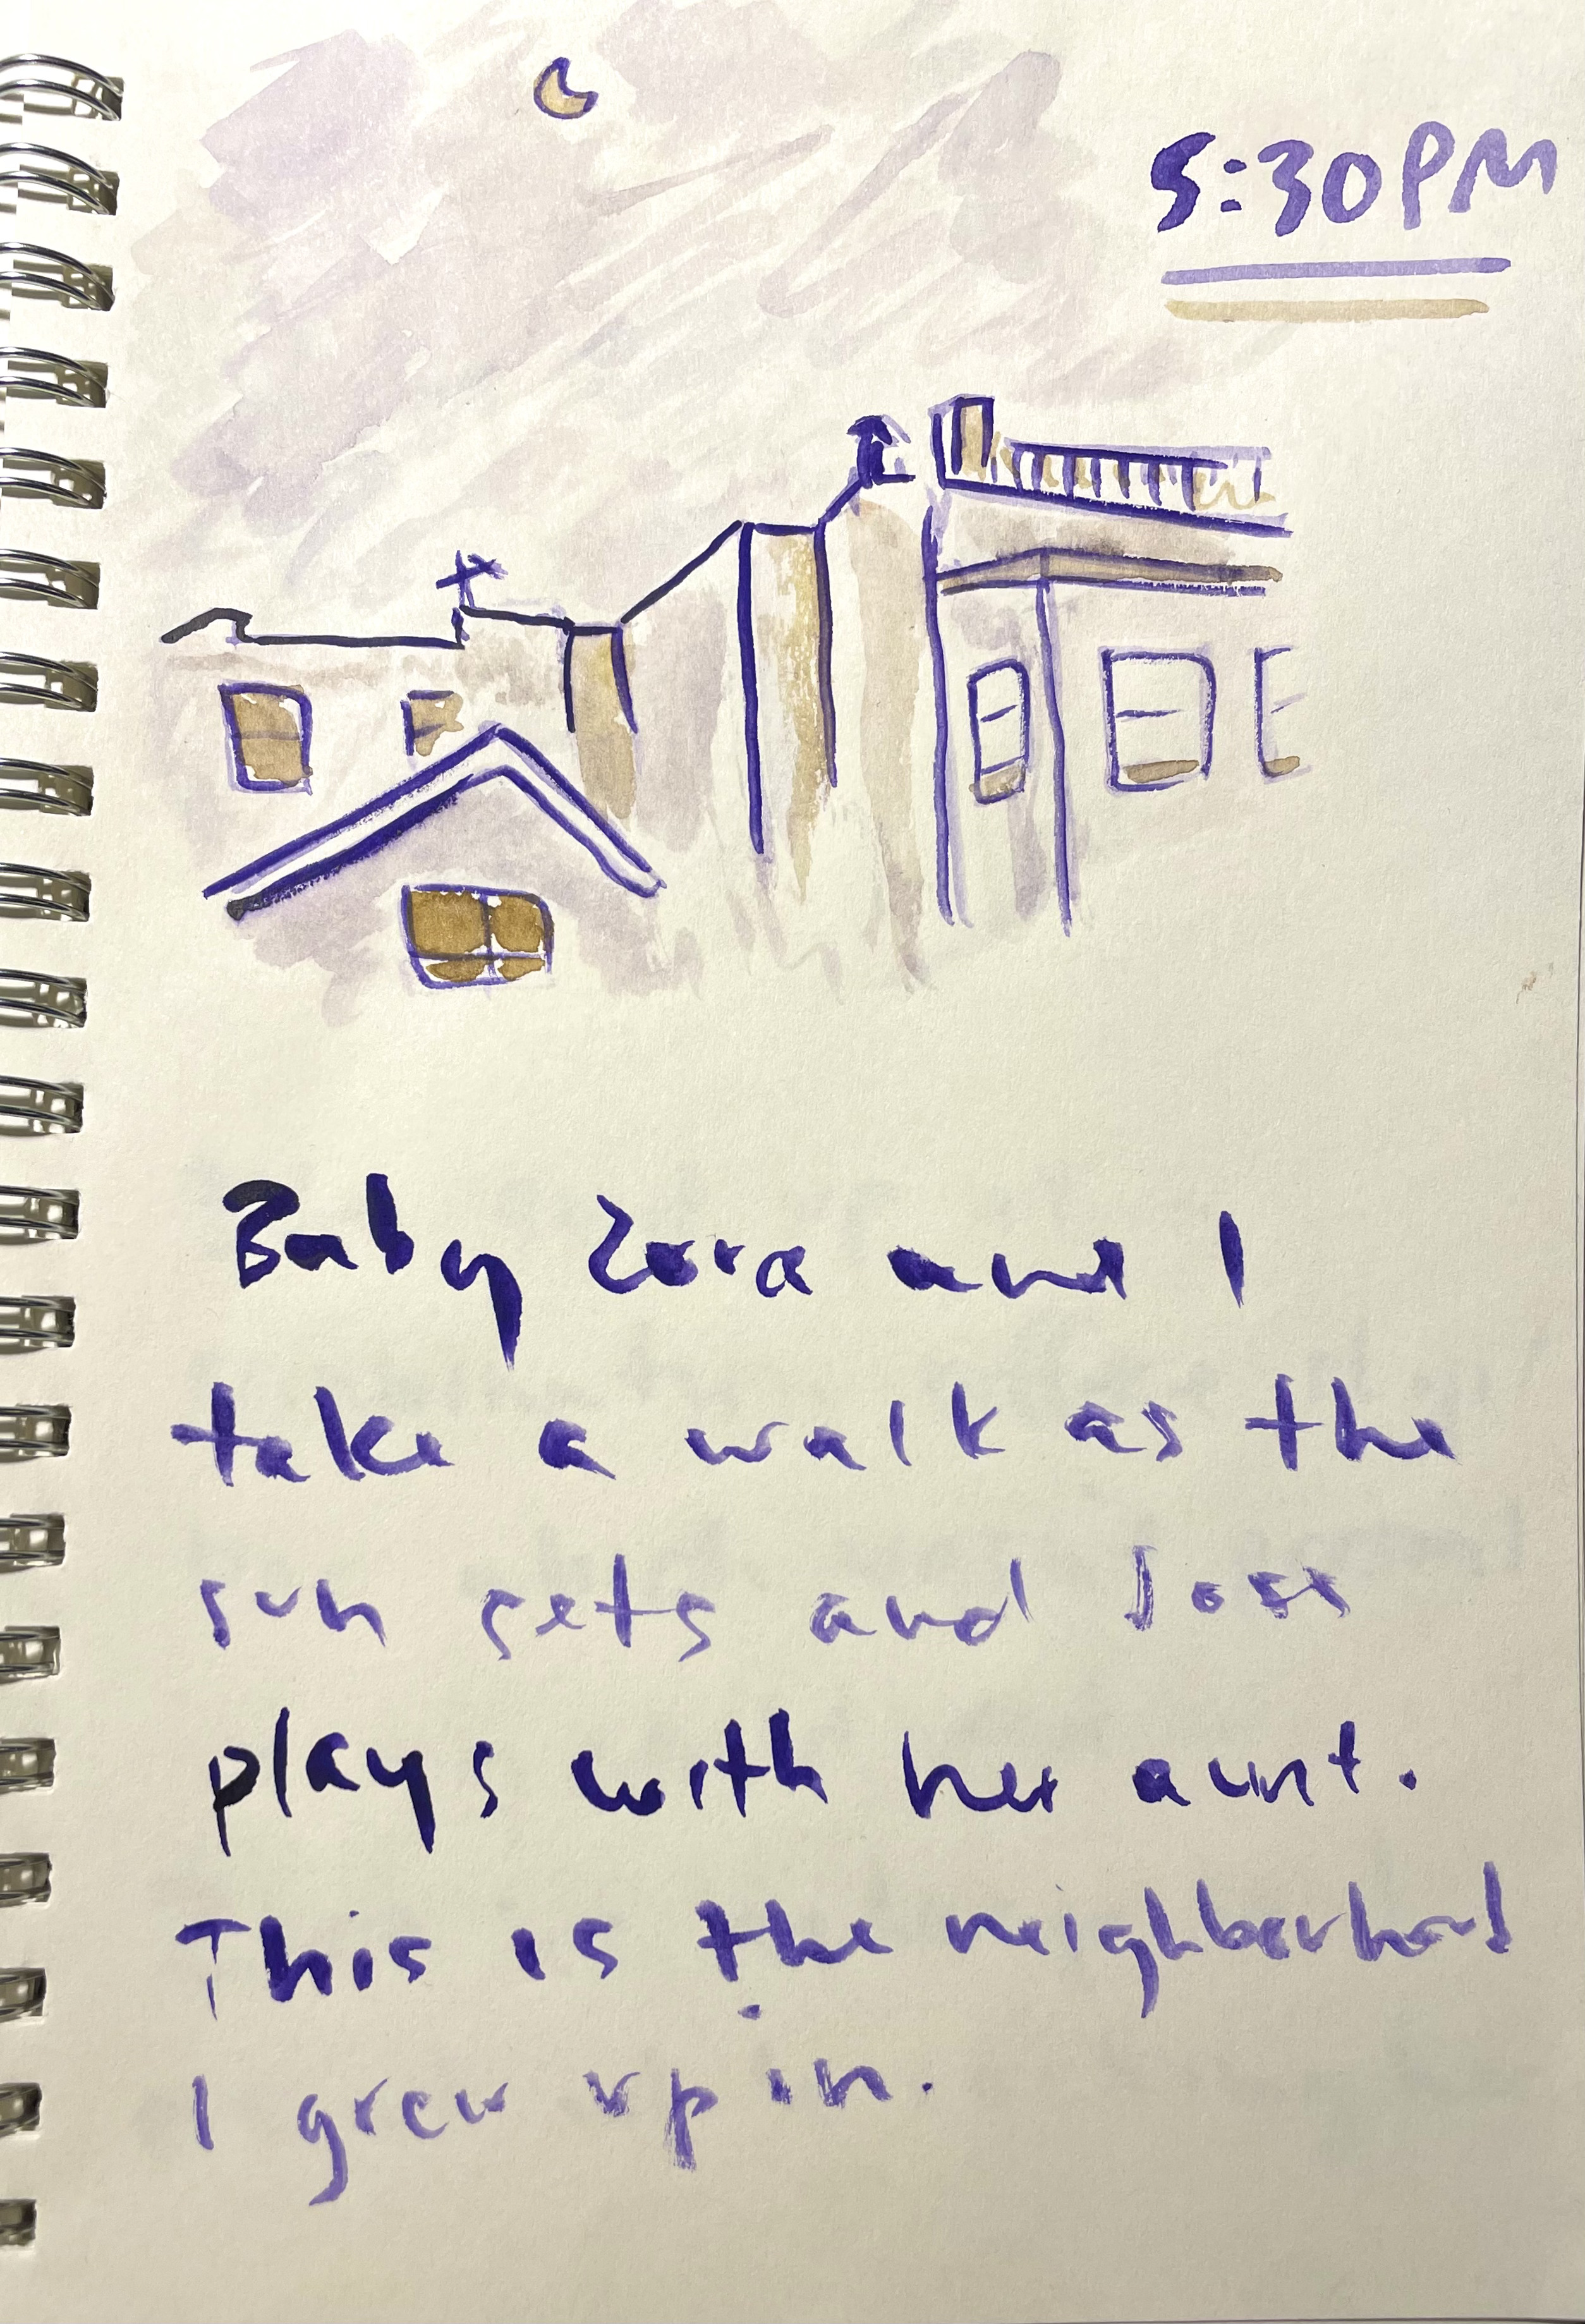 5:30PM
Baby Zora and I
take a walk as the
sun sets and
plays with her aunt.
This is the neighborhood
I grew up in.